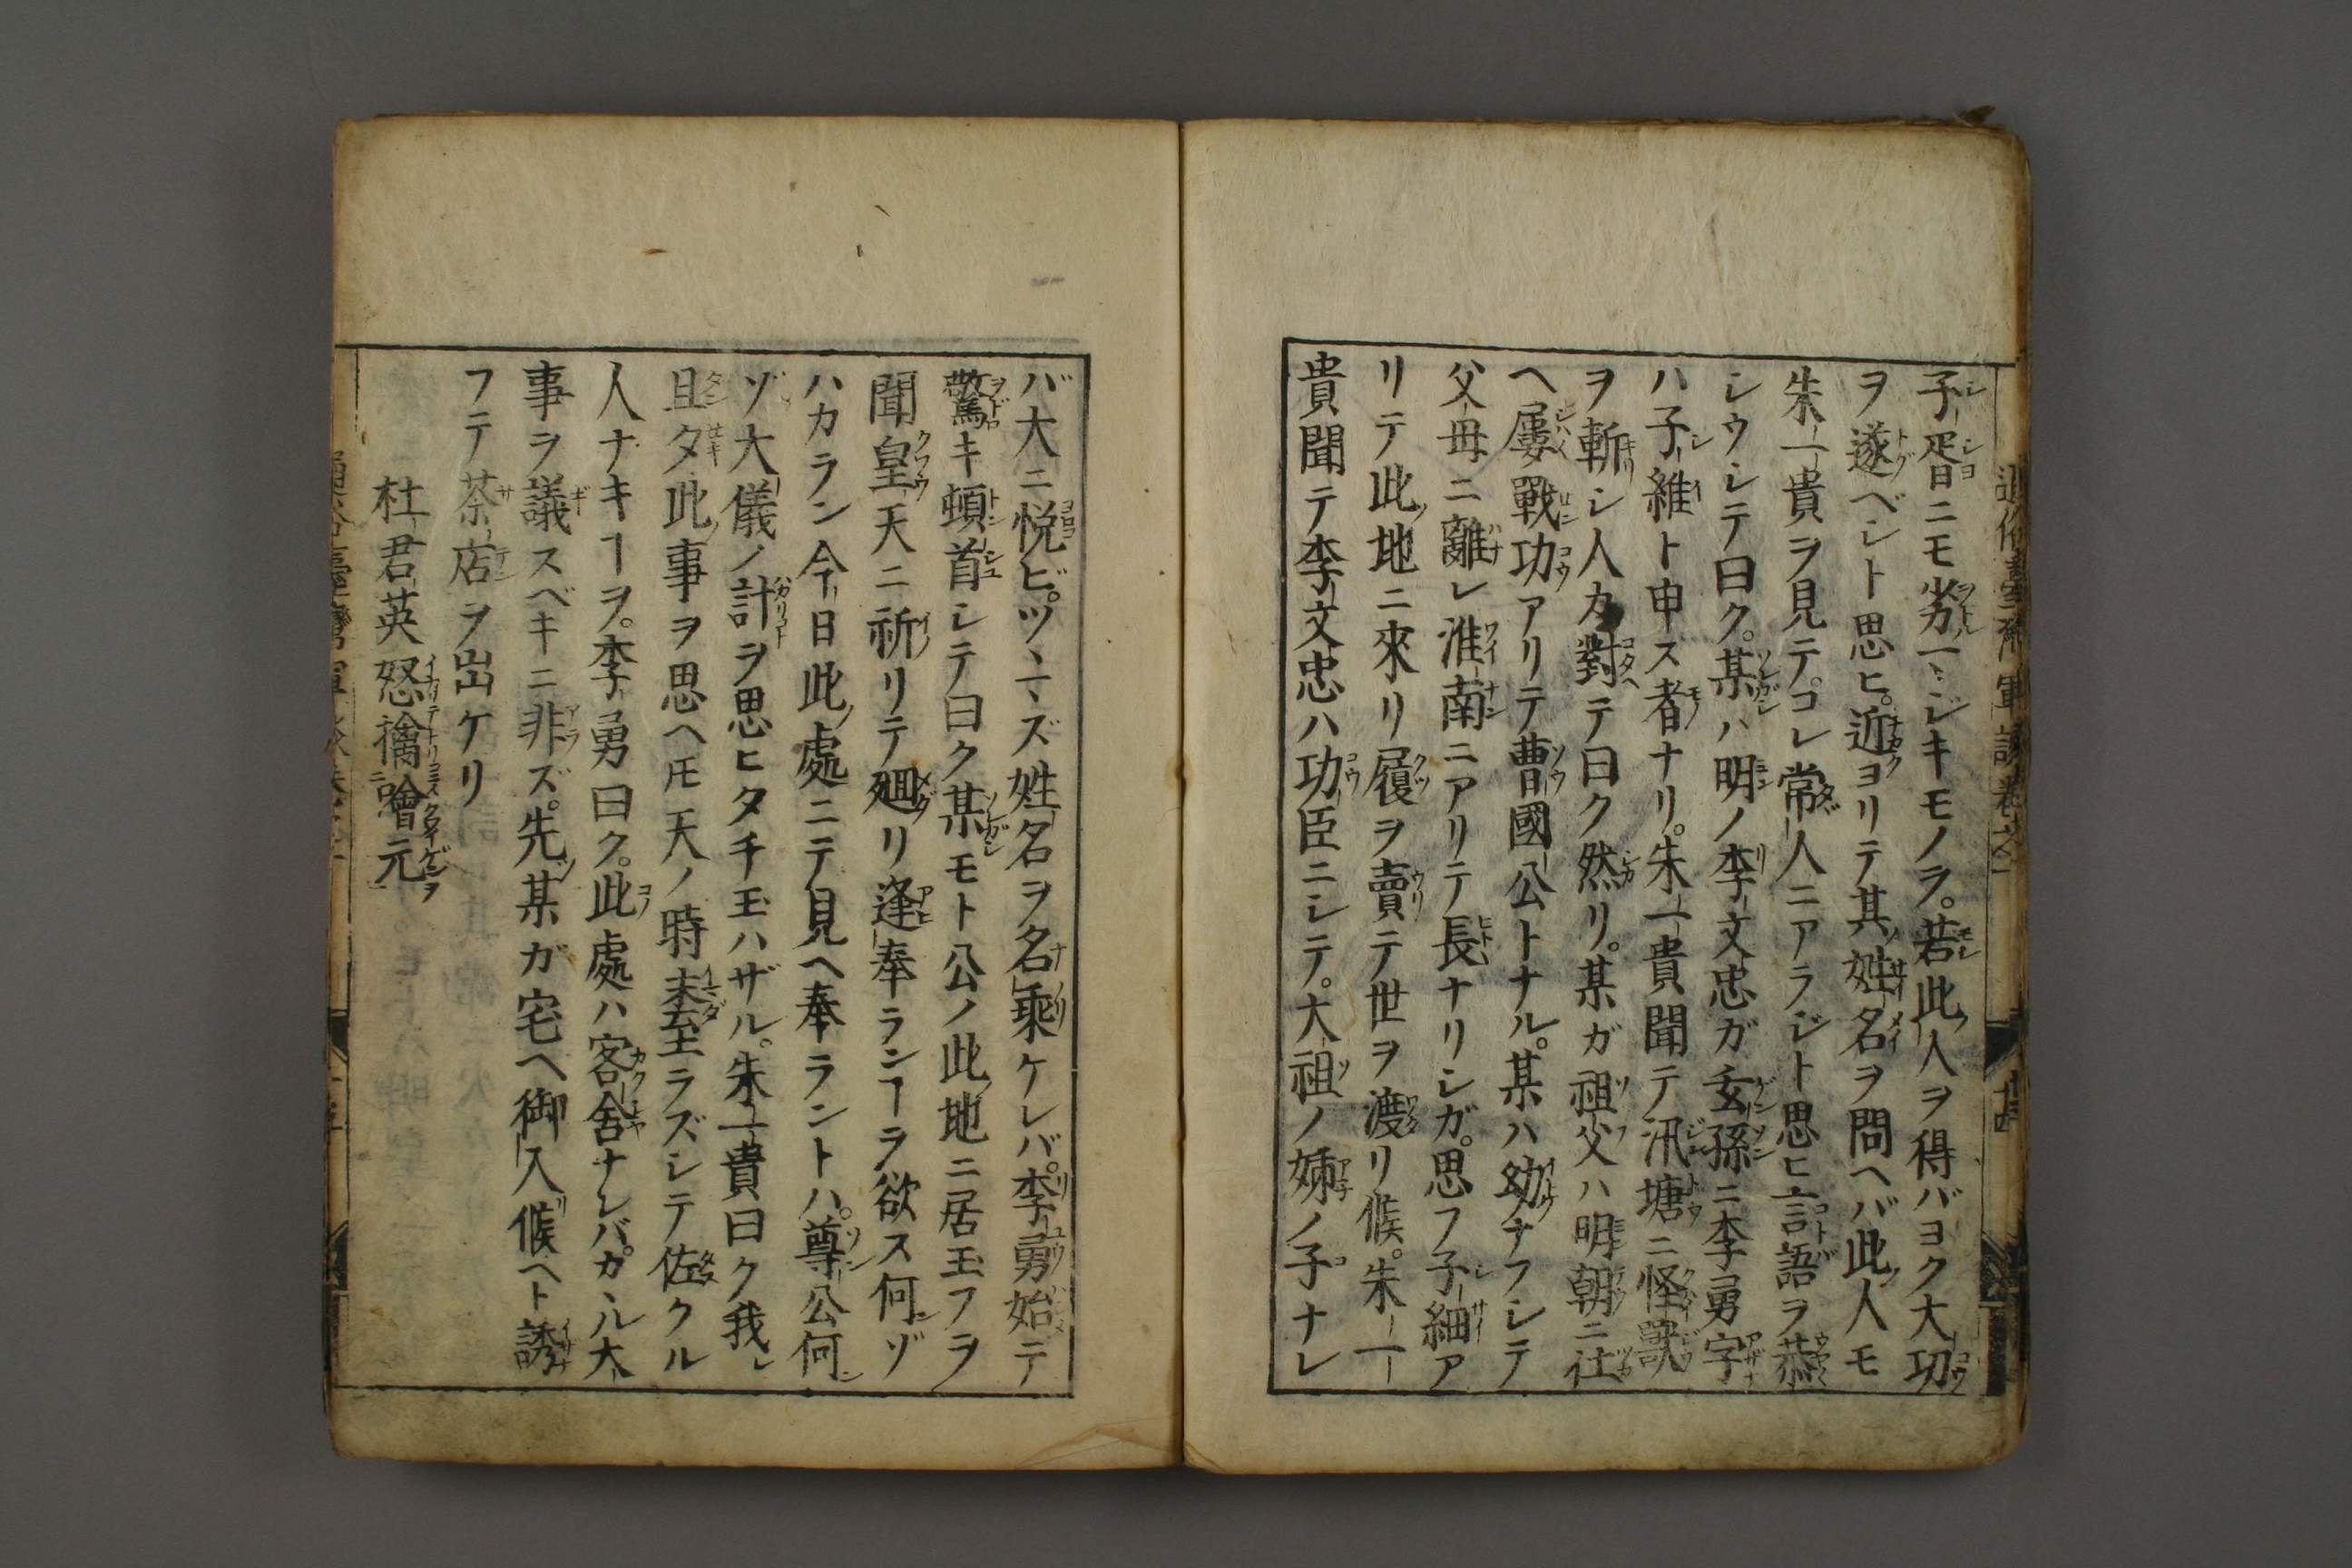 子胥ニモ劣マジキモノヲ。若此人ヲ得バヨク大功
ヲ遂ベシト思ヒ。近ヨリテ其姓名ヲ問ヘバ此人モ
朱一貴ヲ見テ。コレ常人ニアラジト思ヒ言語ヲ恭
シウシテ曰ク。某ハ明ノ李文忠ガ玄孫ニ李勇字
ハ子維ト申ス者ナリ。朱一貴聞テ汛塘ニ怪獣
ヲ斬シ人カ對テ曰ク然リ。某ガ祖父ハ明朝ニ仕
ヘ屢戰功アリテ曹國公トナル。某ハ幼ナフシテ
父母ニ離レ淮南ニアリテ長ナリシガ。思フ子細ア
リテ此地ニ來リ履ヲ賣テ世ヲ渡リ候。朱一
貴聞テ李文忠ハ功臣ニシテ。大祖ノ姉ノ子ナレ
バ大ニ悦ビ。ツヽマズ姓名ヲ名乘ケレバ。李勇始テ
驚キ頓首シテ曰ク某モト公ノ此地ニ居玉フヲ
聞皇天ニ祈リテ廻リ逢奉ランヿヲ欲ス何ゾ
ハカラン今日此處ニテ見ヘ奉ラントハ。尊公何
ゾ大儀ノ計ヲ思ヒタチ玉ハザル。朱一貴曰ク我
且タ此事ヲ思ヘ𪜈天ノ時未至ラズシテ佐クル
人ナキヿヲ。李勇曰ク。此處ハ客舍ナレバ。カヽル大
事ヲ議スベキニ非ズ。先某ガ宅ヘ御入候ヘト誘
フテ茶店ヲ出ケリ
杜君英怒擒噲元